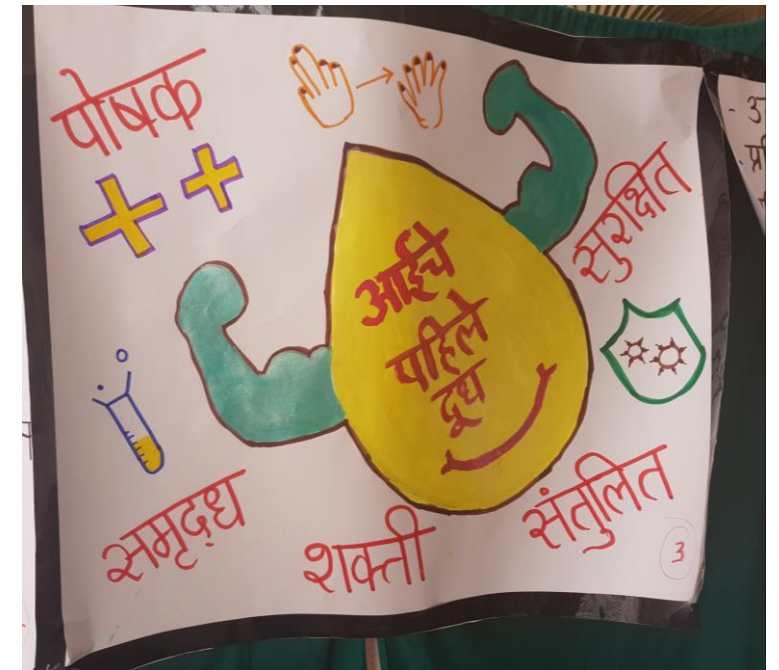 पोषक
सुरक्षित
आईचे
पहिले
दूध
समृद्ध
शक्ती
संतुलित
3